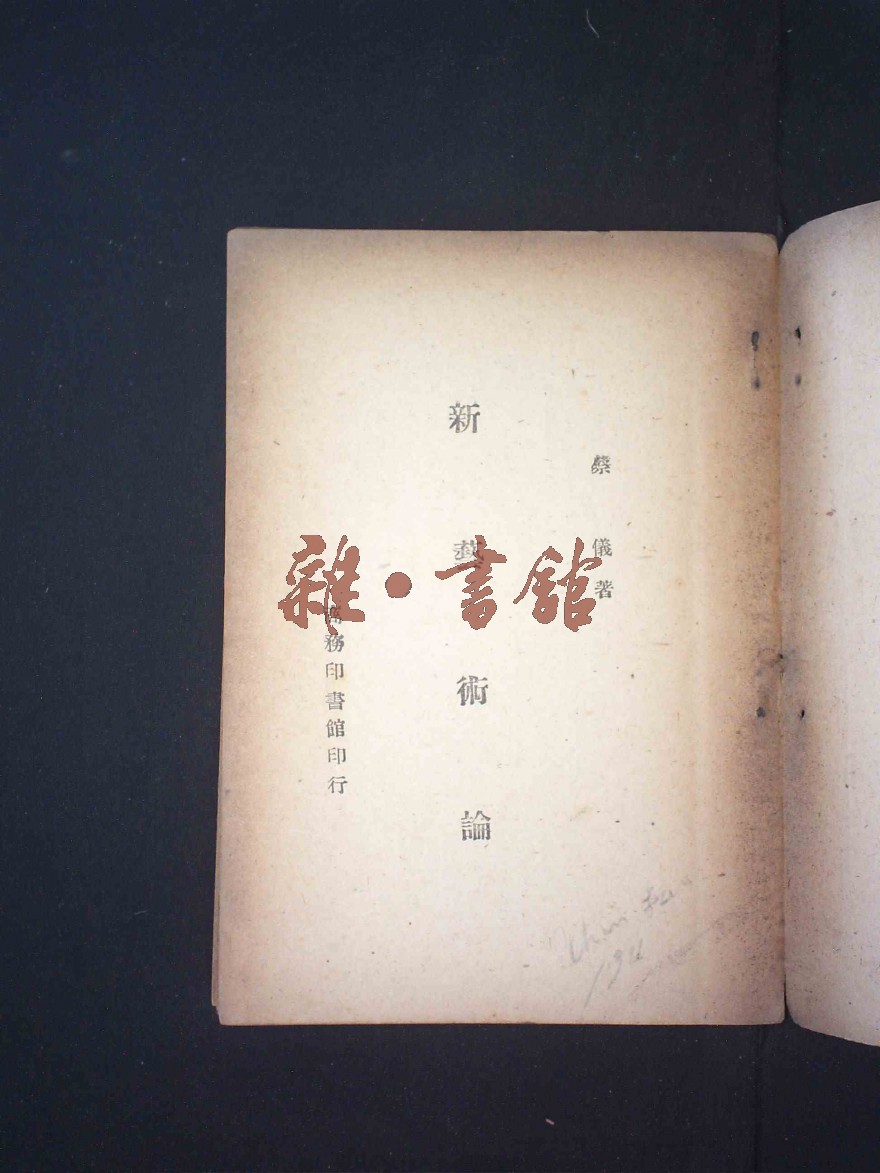 蔡儀著
新藝術論
商務印書館印行
雜·書館